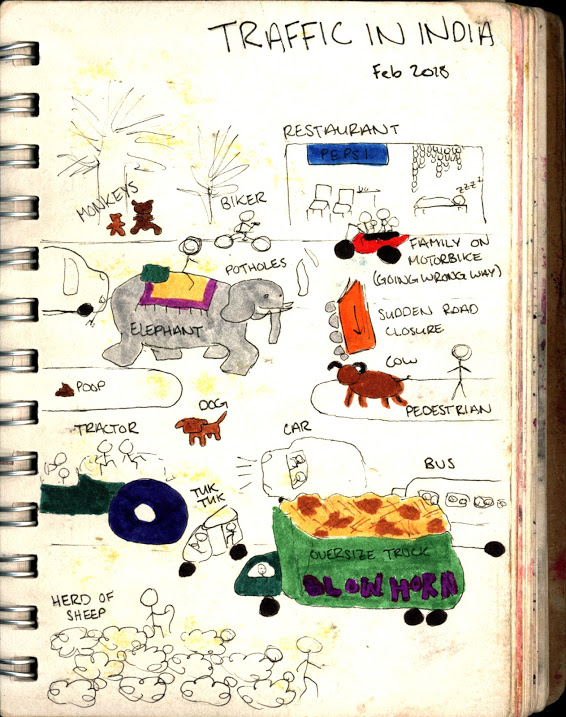 TRAFFIC IN INDIA
Feb 2018
RESTAURANT
PEPSI
ZZZZ
MONKEYS
BIKER
FAMILY ON
MOTORBIKE
(GOING WRONG WAY)
POTHOLES
ELEPHANT
SUDDEN ROAD
CLOSURE
COW
POOP
DOG
PEDESTRIAN
TRACTOR
CAR
BUS
TUK
TUK
OVERSIZE TRUCK
BLOW HORN
HERD OF
SHEEP